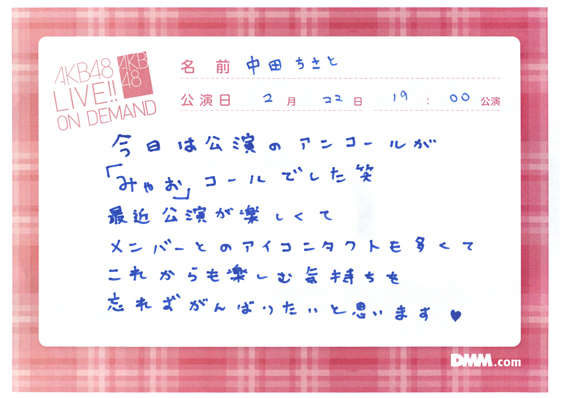 AKB48
LIVE!!
ON DEMAND
AKB
48
名 前 中田ちさと
公演日 2月 22日 19:00公演
今日は公演のアンコールが
「みゃお」コールでした笑
最近公演が楽しくて
メンバーとのアイコンタクトも多くて
これからも楽しむ気持ちを
忘れずがんばりたいと思います♥
DMM.com